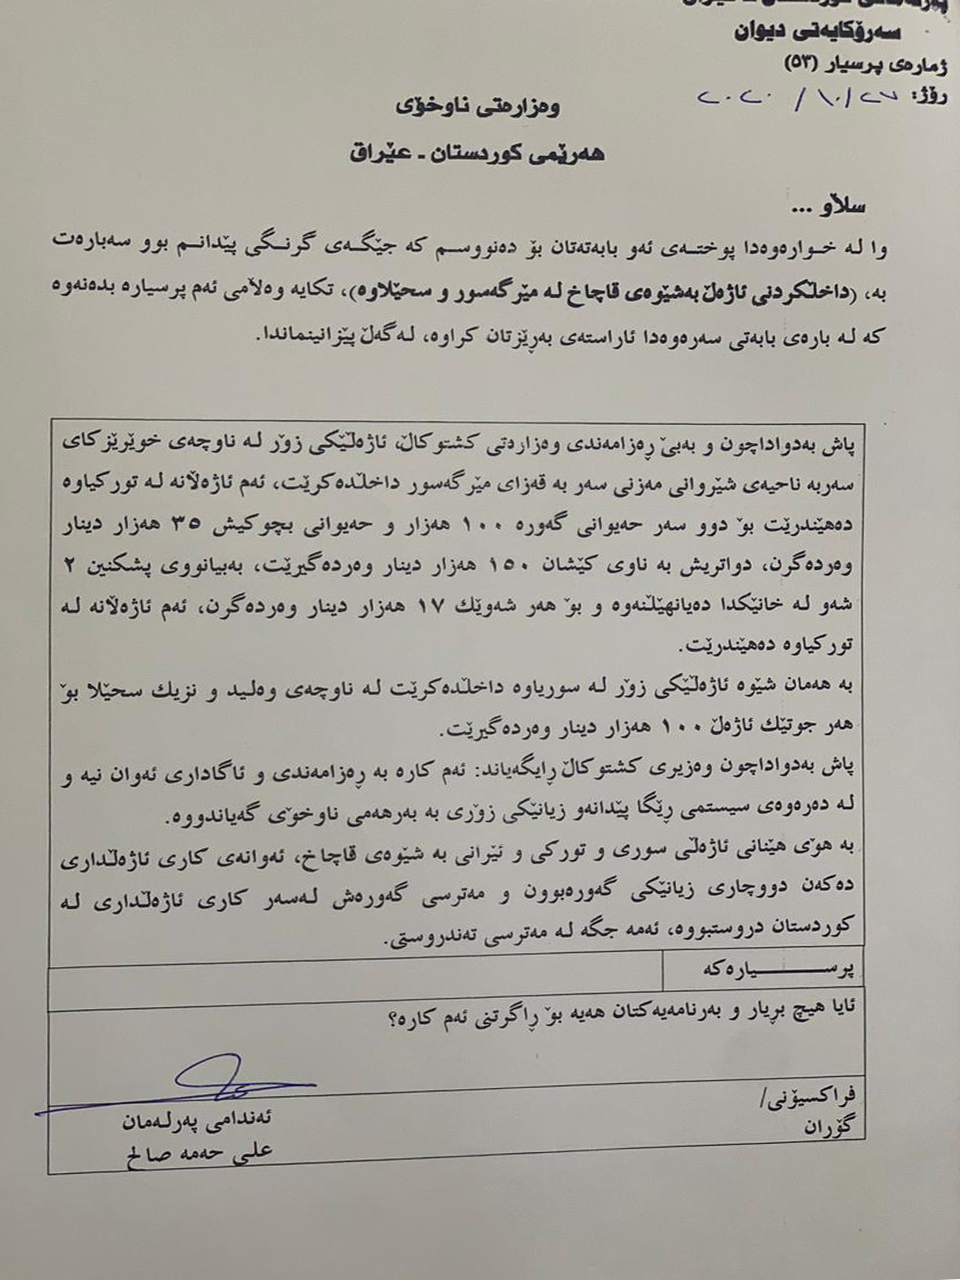 سەرۆکایەتی دیوان
ژمارەی پرسیار (٥٣)
رۆژ: ٢٠٢٠/١٠/٢٧
وەزارەتی ناوخۆی
هەرێمی کوردستان - عێراق
سلاو ...
وا لە خوارەوەدا پوختەی ئەو بابەتەتان بۆ دەنووسم کە جێگەی گرنگی پێدانم بوو سەبارەت
بە، (داخڵکردنی ئاژەڵ بەشێوەی قاچاخ لە مێرگەسور و سحێلاوە)، تکایە وەلامی ئەم پرسیارە بدەنەوە
کە لە بارەی بابەتی سەرەوەدا ئاراستەی بەرێزتان کراوە، لەگەڵ پێزانینماندا.
پاش بەدواداچون و بەبێ ڕەزامەندی وەزارەتی کشتوکاڵ، ئاژەڵێکی زۆر لە ناوچەی خوێرێزکای
سەربە ناحیەی شێروانی مەزنی سەر بە قەزای مێرگەسور داخڵدەکرێت، ئەم ئاژەڵانە لە تورکیاوە
دەهێندرێت بۆ دوو سەر حەیوانی گەورە ١٠٠ هەزار و حەیوانی بچوکیش ٣٥ هەزار دینار
وەردەگرن، دواتریش بە ناوی کێشان ١٥٠ هەزار دینار وەردەگیرێت، بەبیانووی پشکنین ٢
شەو لە خانێکدا دەیانهێڵنەوە و بۆ هەر شەوێك ١٧ هەزار دینار وەردەگرن، ئەم ئاژەڵانە لە
تورکیاوە دەهێندرێت.
بە هەمان شێوە ئاژەڵێکی زۆر لە سوریاوە داخڵدەکرێت لە ناوچەی وەلید و نزیك سحێلا بۆ
هەر جوتێك ئاژەڵ ١٠٠ هەزار دینار وەردەگیرێت.
پاش بەدواداچون وەزیری کشتوکاڵ ڕایگەیاند: ئەم کارە بە ڕەزامەندی و ئاگاداری ئەوان نیە و
لە دەرەوەی سیستمی ڕێگا پێدانەو زیانێکی زۆری بە بەرهەمی ناوخۆی گەیاندووە.
بە هۆی هێنانی ئاژەڵی سوری و تورکی و ئێرانی بە شێوەی قاچاخ، ئەوانەی کاری ئاژەڵداری
دەکەن دووچاری زیانێکی گەورەبوون و مەترسی گەورەش لەسەر کاری ئاژەڵداری لە
کوردستان دروستبووە، ئەمە جگە لە مەترسی تەندروستی.
پرسیارەکە
ئایا هیچ بریار و بەرنامەیەکتان هەیە بۆ ڕاگرتنی ئەم کارە؟
فراکسیۆنی/
گۆران
ئەندامی پەرلەمان
علی حەمە صالح